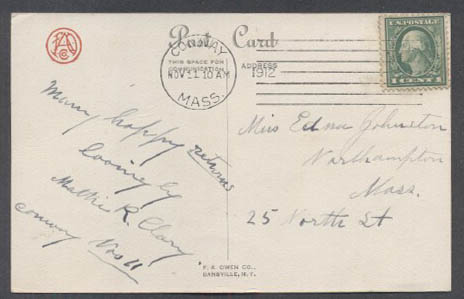 Post Card
THIS SPACE FOR
COMMUNICATION
ADDRESS
CONWAY
NOV 11 10 AM
1912
MASS.
U.S. POSTAGE
1 CENT 1
Many happy returns
lovingly
Mattie R. Clary
Conway Nov 11
Miss Edna Johnston
Northampton
Mass.
25 North St
F. A. OWEN CO.,
DANSVILLE, N. Y.